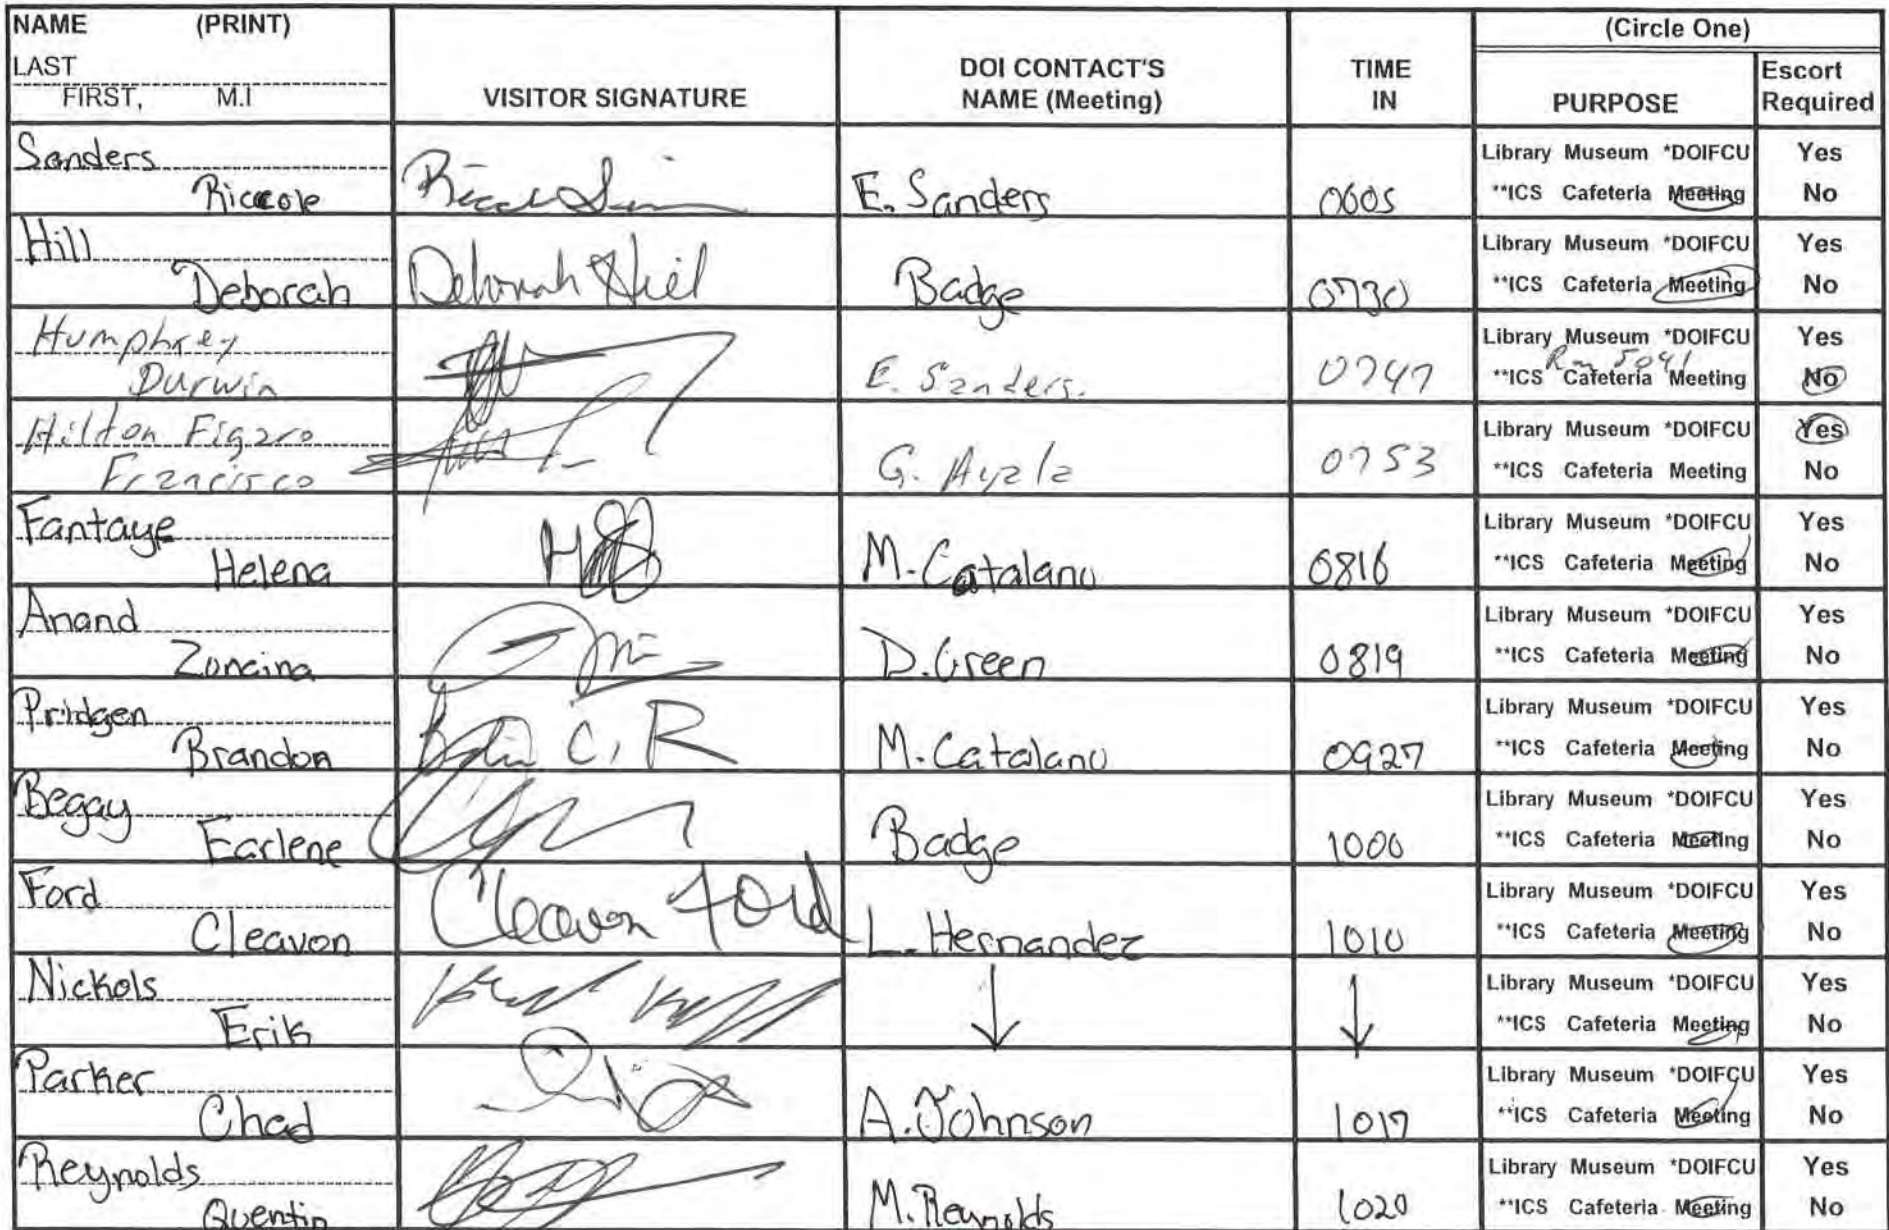 NAME (PRINT)
LAST
FIRST, M.I
VISITOR SIGNATURE
DOI CONTACT'S
NAME (Meeting)
TIME
IN
(Circle One)
PURPOSE
Escort
Required
Sanders
Riccole
E. Sanders
0605
Library Museum *DOIFCU Yes
**ICS Cafeteria Meeting No
Hill
Deborah
Deborah Hill
Badge
0730
Library Museum *DOIFCU Yes
**ICS Cafeteria Meeting No
Humphrey
Durwin
E. Sanders.
0747
Library Museum *DOIFCU Yes
Rm 5041
**ICS Cafeteria Meeting No
Hildon Figaro
Francisco
G. Ayala
0753
Library Museum *DOIFCU Yes
**ICS Cafeteria Meeting No
Fantaye
Helena
M. Catalano
0816
Library Museum *DOIFCU Yes
**ICS Cafeteria Meeting No
Anand
Zoncina
D. Green
0819
Library Museum *DOIFCU Yes
**ICS Cafeteria Meeting No
Pridgen
Brandon
M. Catalano
0927
Library Museum *DOIFCU Yes
**ICS Cafeteria Meeting No
Begay
Earlene
Badge
1000
Library Museum *DOIFCU Yes
**ICS Cafeteria Meeting No
Ford
Cleavon
Cleavon Ford
L. Hernandez
1010
Library Museum *DOIFCU Yes
**ICS Cafeteria Meeting No
Nickols
Erik
Library Museum *DOIFCU Yes
**ICS Cafeteria Meeting No
Parker
Chad
A. Johnson
1017
Library Museum *DOIFCU Yes
**ICS Cafeteria Meeting No
Reynolds
Quentin
M. Reynolds
1020
Library Museum *DOIFCU Yes
**ICS Cafeteria Meeting No